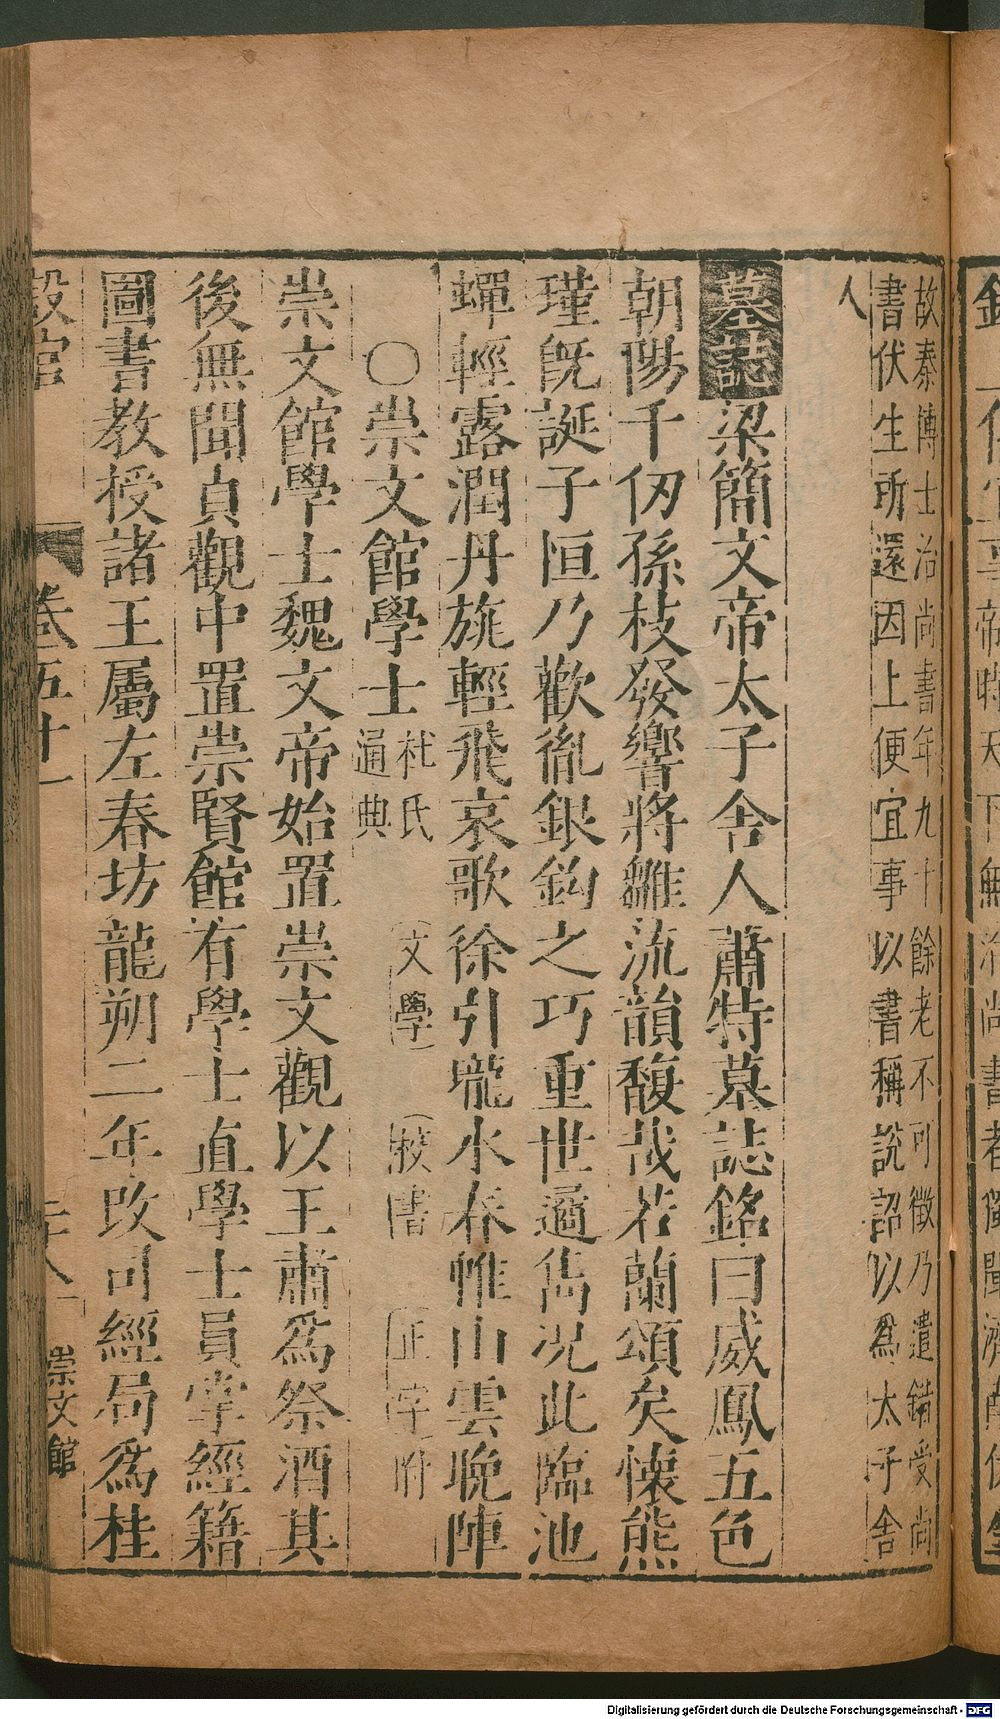 故秦博士治尚書年九十餘老不可徵乃遣錯受尚
書伏生所還因上便宜事以書稱說詔以爲太子舍
人
墓誌梁簡文帝太子舍人蕭特墓誌銘曰威鳳五色
朝陽千仞孫枝發響將雛流韻馥哉若蘭頌矣懷熊
瑾旣誕子恒乃歡胤銀鈎之巧重世逾雋况此臨池
蟬輕露潤丹旐輕飛哀歌徐引壠水春帷山雲晚陣
○崇文館學士杜氏通典 文學 校書 正字附
崇文館學士魏文帝始置崇文觀以王肅爲祭酒其
後無聞貞觀中置崇賢館有學士直學士員掌經籍
圖書教授諸王屬左春坊龍朔二年改司經局爲桂
設官 卷五十一 二十八 崇文館
Digitalisierung gefördert durch die Deutsche Forschungsgemeinschaft - DFG